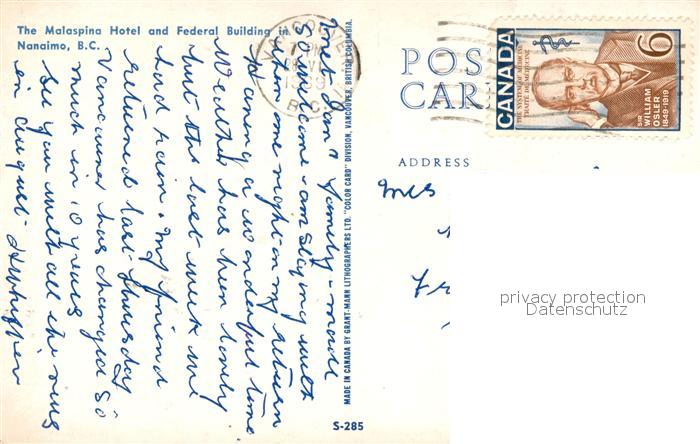 The Malaspina Hotel and Federal Building in
Nanaimo, B.C.
family - made
so welcome - am staying with
him one night on my return
Having a wonderful time
Weather has been lovely
but the last week we
had rain. My friend
returned last Thursday
Vancouver has changed so
much in 10 years
See you with all the news
in August
MADE IN CANADA BY GRANT-MANN LITHOGRAPHERS LTD. "COLOR CARD" DIVISION, VANCOUVER, BRITISH COLUMBIA.
S-285
VANCOUVER
B.C.
POS
CAR
CANADA
6
THE SYSTEM OF MEDICINE
TRAITÉ DE MÉDECINE
SIR
WILLIAM
OSLER
1849-1919
ADDRESS
Mrs
privacy protection
Datenschutz